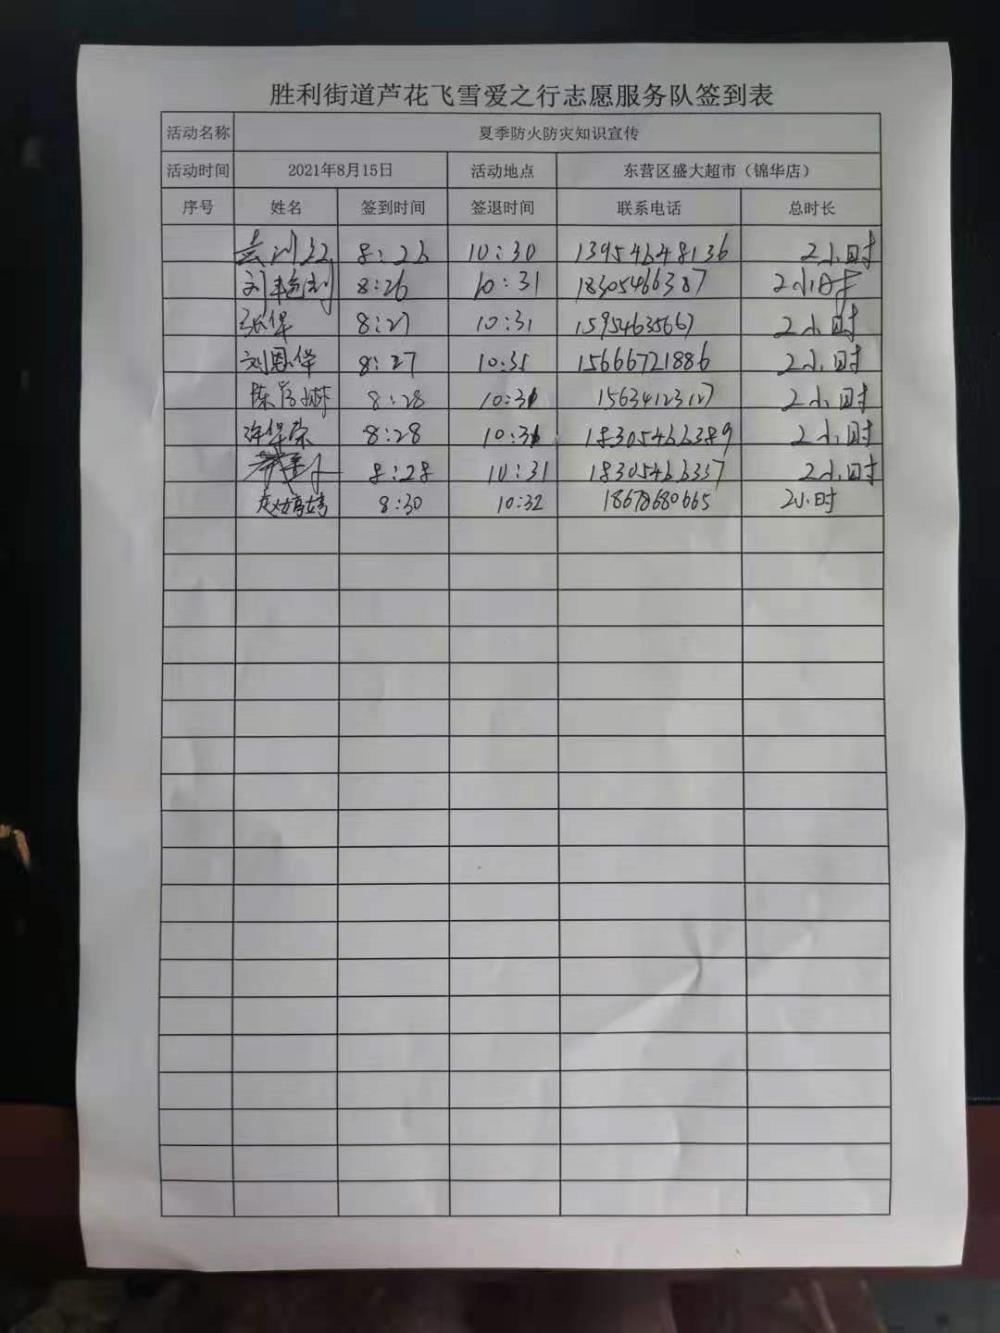 胜利街道芦花飞雪爱之行志愿服务队签到表
活动名称 夏季防火防灾知识宣传
活动时间 2021年8月15日 活动地点 东营区盛大超市（锦华店）
序号 姓名 签到时间 签退时间 联系电话 总时长
8:26 10:30 13954648136 2小时
刘艳利 8:26 10:31 18305466387 2小时
张保 8:27 10:31 15954635667 2小时
刘恩保 8:27 10:31 15666721886 2小时
陈 8:28 10:31 15634123127 2小时
许保荣 8:28 10:31 18305466389 2小时
8:28 10:31 18305466337 2小时
赵婷婷 8:30 10:32 18678680665 2小时